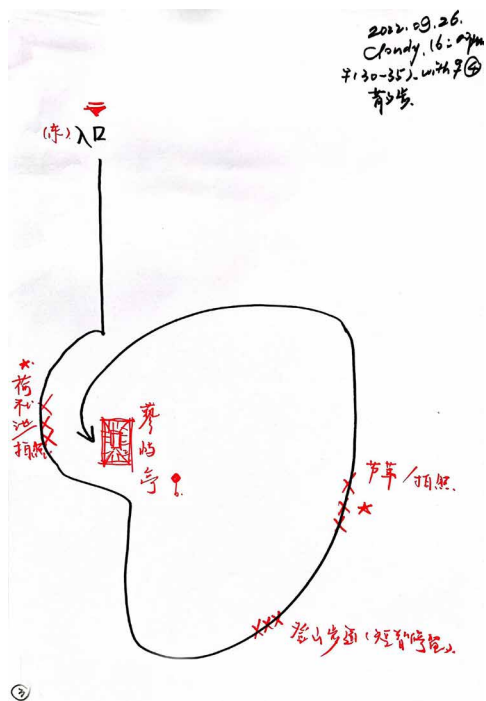 2022.09.26.
Cloudy. 16:
(30-35). with ♀④
散步.
(东) 入口
★
荷
花
池/
拍照.
廖
屿
亭
6.
芦苇/拍照.
★
登山步道(短暂停留).
③